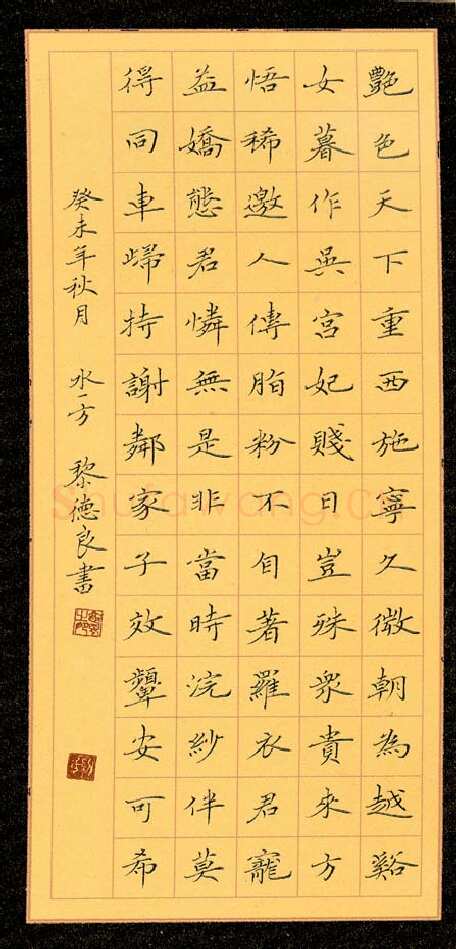 艷色天下重西施寧久微朝為越谿
女暮作吳宮妃賤日豈殊衆貴來方
悟稀邀人傅脂粉不自著羅衣君寵
益嬌態君憐無是非當時浣紗伴莫
得同車歸持謝鄰家子效顰安可希
癸未年秋月 水一方 黎德良書